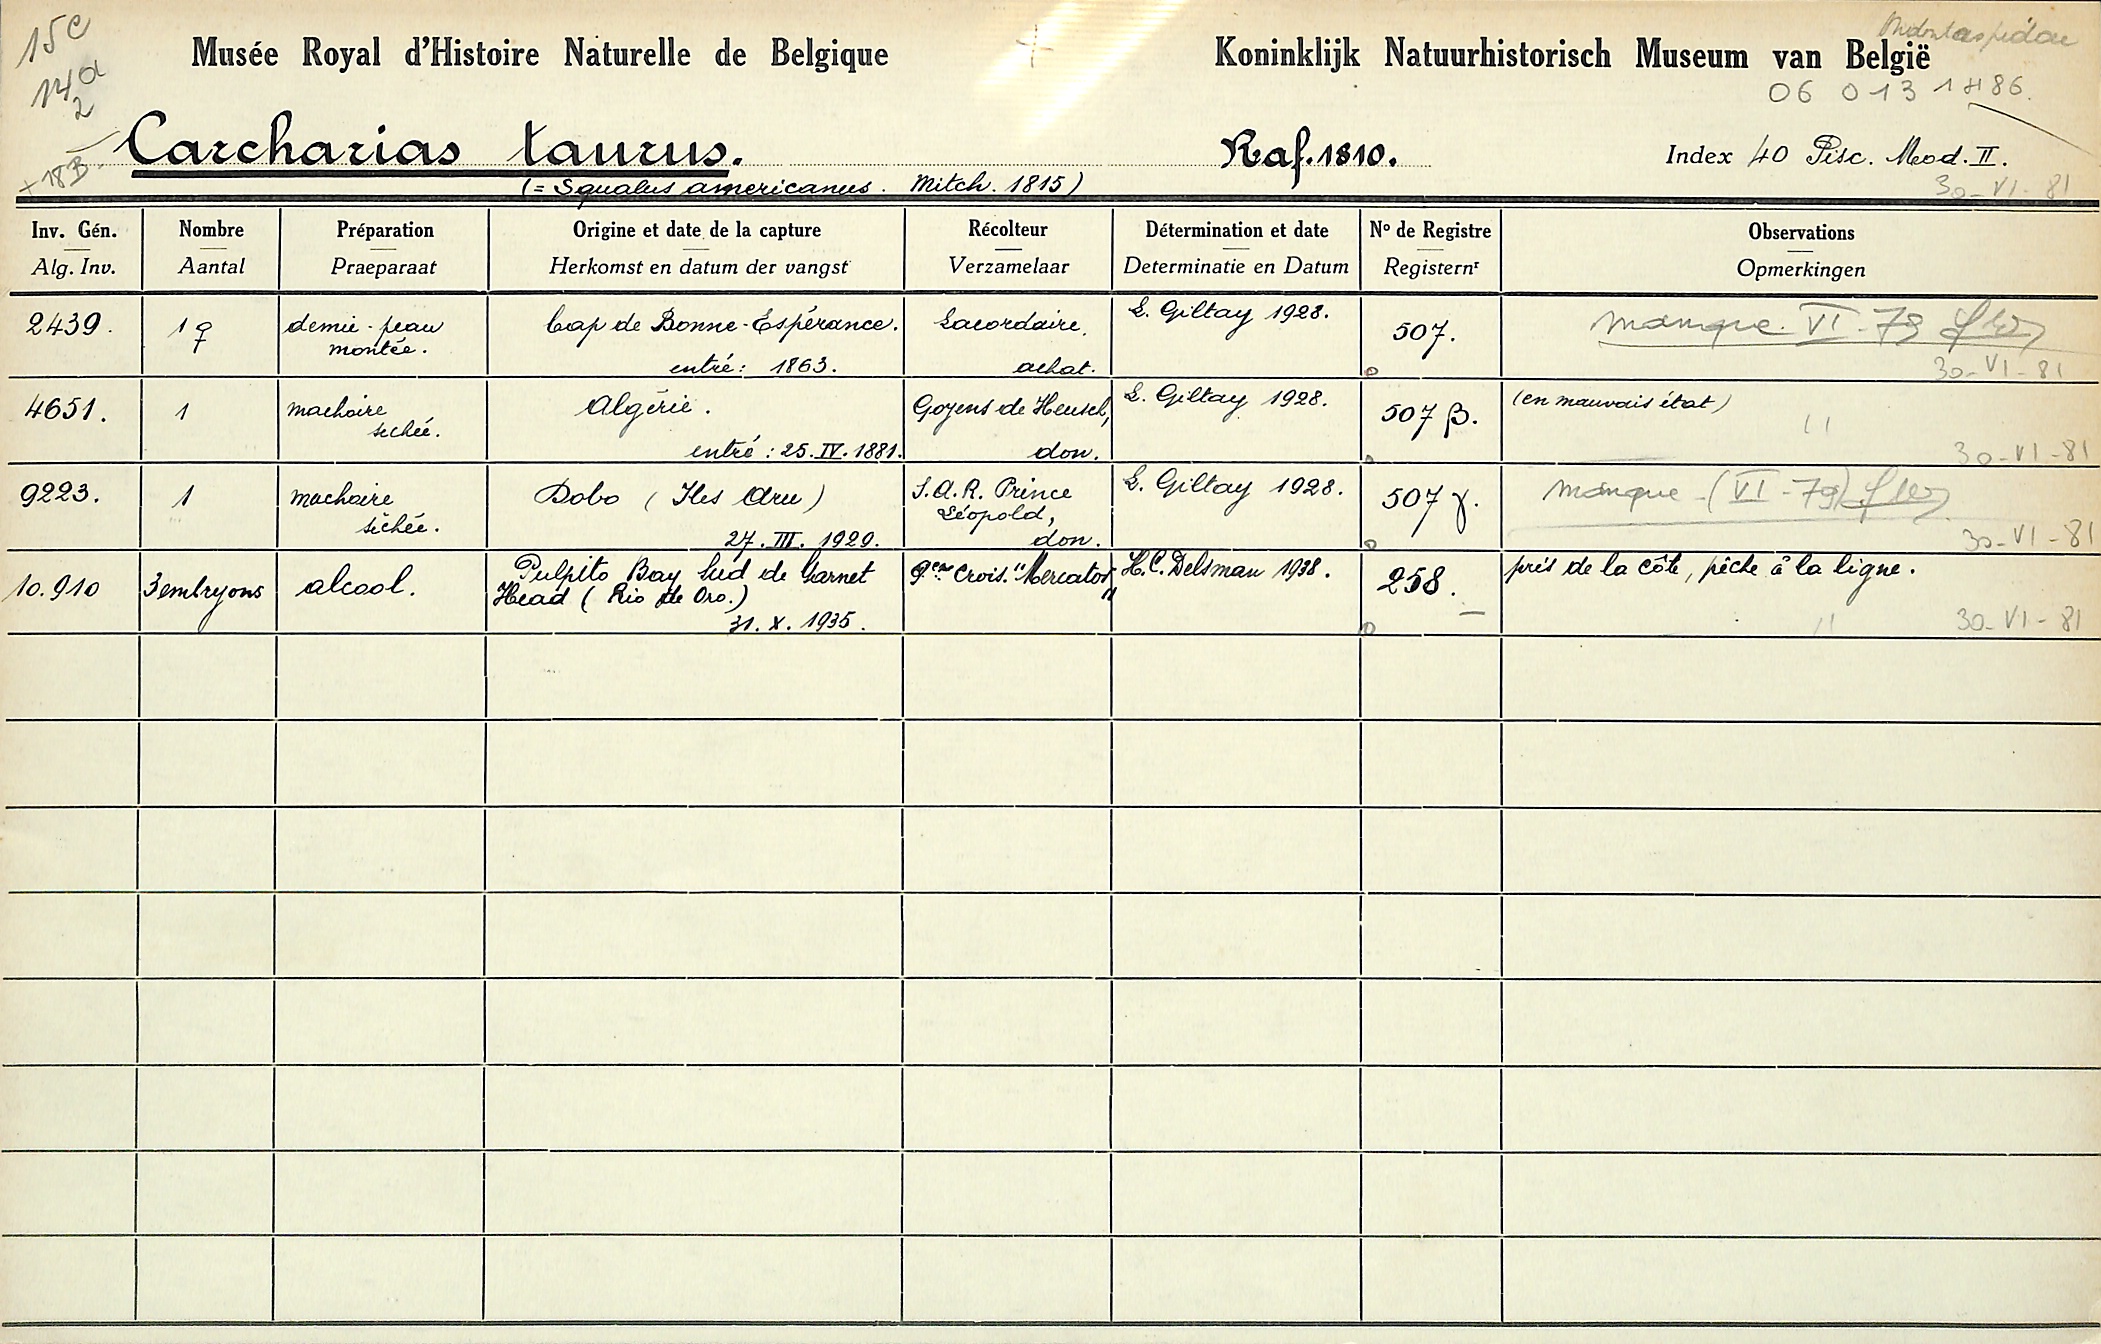 15C
14a
2
+18B.
Musée Royal d'Histoire Naturelle de Belgique
Koninklijk Natuurhistorisch Museum van België
06 013 1486.
Carcharias taurus. Raf. 1810. Index 40 Pisc. Mod. II.
(= Squalus americanus. Mitch. 1815)
30-VI-81
Inv. Gén. Nombre Préparation Origine et date de la capture Récolteur Détermination et date No de Registre Observations
Alg. Inv. Aantal Praeparaat Herkomst en datum der vangst Verzamelaar Determinatie en Datum Registernr Opmerkingen
2439. 1 ♀ demie-peau Cap de Bonne-Espérance. Lacordaire, L. Giltay 1928. 507. manque VI-79
montée.
entré: 1863. achat. 30-VI-81
4651. 1 machoire Algérie. Goyens de Heusch, L. Giltay 1928. 507 β. (en mauvais état)
sechée. "
entré: 25. IV. 1881. don. 30-VI-81
9223. 1 machoire Dobo (Iles Aru) S.A.R. Prince L. Giltay 1928. 507 γ. manque (VI-79)
séchée. Léopold,
27. III. 1929. don. 30-VI-81
10.910 3 embryons alcool. Pulpito Bay Sud de Garnet 9eme Crois. "Mercator" H.C. Delsman 1938. 258. près de la côte, pêche à la ligne.
Head (Rio de Oro.)
31. X. 1935. " 30-VI-81